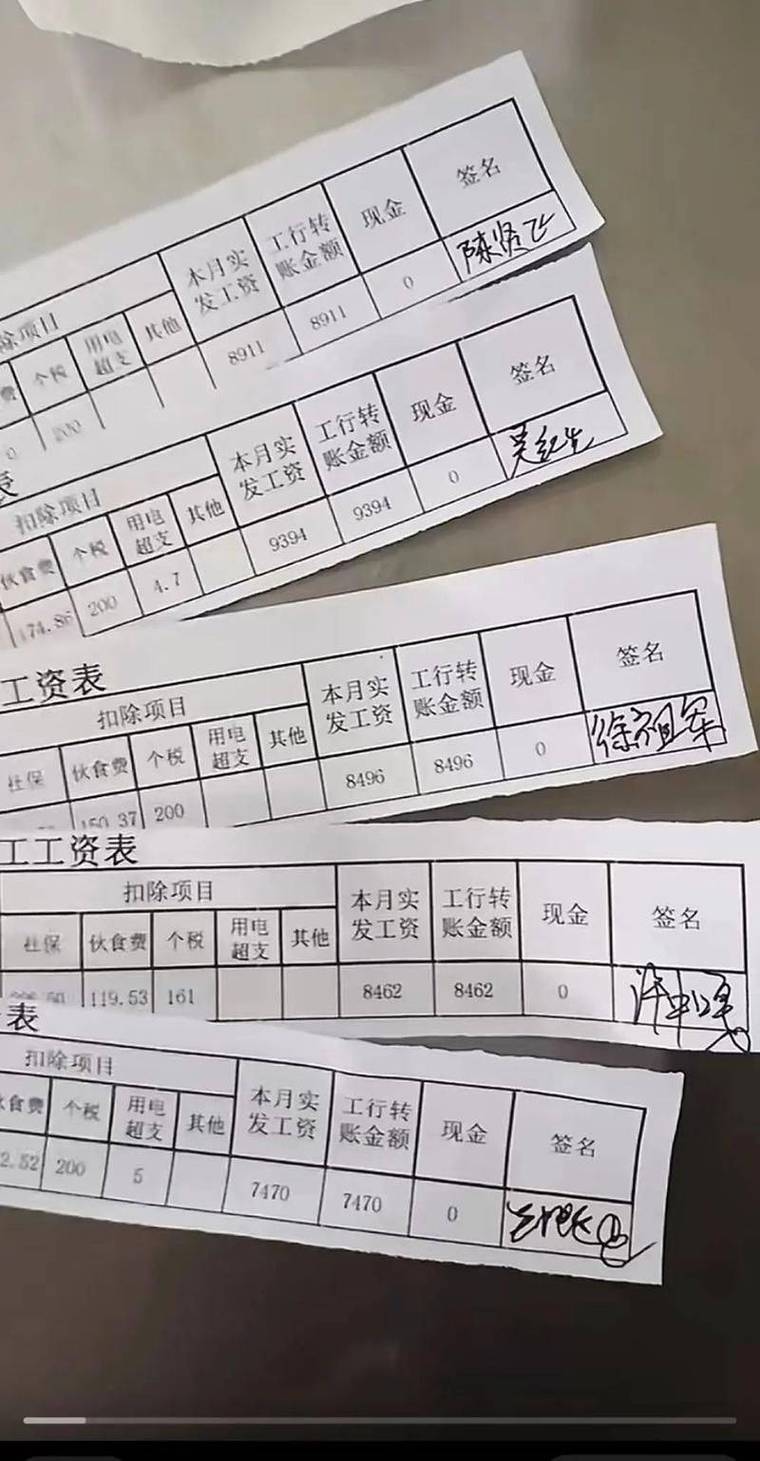 除项目 本月实发工资 工行转账金额 现金 签名
费 个税 用电超支 其他
0 200 8911 8911 0 陈贤飞
表
扣除项目 本月实发工资 工行转账金额 现金 签名
伙食费 个税 用电超支 其他
174.86 200 4.7 9394 9394 0
工资表
扣除项目 本月实发工资 工行转账金额 现金 签名
社保 伙食费 个税 用电超支 其他
150.37 200 8496 8496 0 徐祖军
工工资表
扣除项目 本月实发工资 工行转账金额 现金 签名
社保 伙食费 个税 用电超支 其他
119.53 161 8462 8462 0
表
扣除项目 本月实发工资 工行转账金额 现金 签名
食费 个税 用电超支 其他
2.52 200 5 7470 7470 0